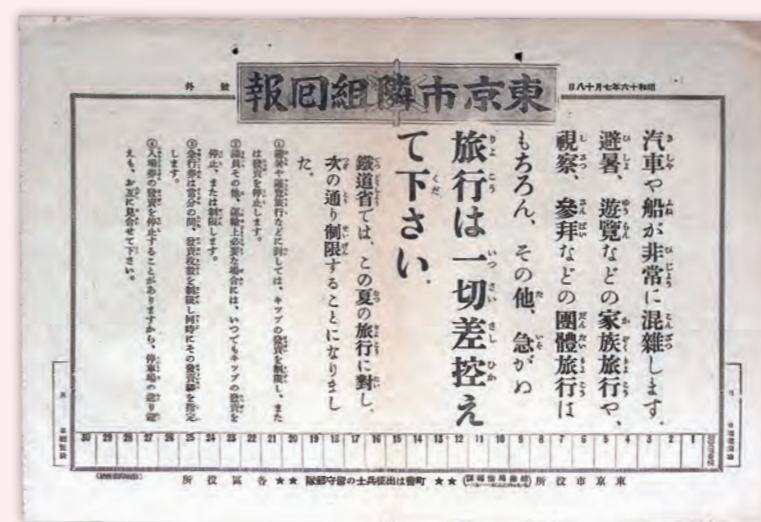 東京市隣組回報
昭和十六年七月十八日
號外
汽車や船が非常に混雜します。
避暑、遊覽などの家族旅行や、
視察、參拜などの團體旅行は
もちろん、その他、急がぬ
旅行は一切差控え
て下さい。
鐵道省では、この夏の旅行に對し、
次の通り制限することになりまし
た。
①避暑や遊覽旅行などに對しては、キツプの發賣を制限し、また
は發賣を停止します。
②團員その他、運輸上必要な場合には、いつでもキツプの發賣を
停止、または制限します。
③急行券は當分の間、發賣枚數を制限し同時にその發賣驛を指定
します。
④入場券の發賣を停止することがありますから、停車場の送り迎
えも、お互に見合せて下さい。
1 2 3 4 5 6 7 8 9 10 11 12 13 14 15 16 17 18 19 20 21 22 23 24 25 26 27 28 29 30
東京市役所
★★ 町會は出征兵士の留守部隊 ★★
各區役所